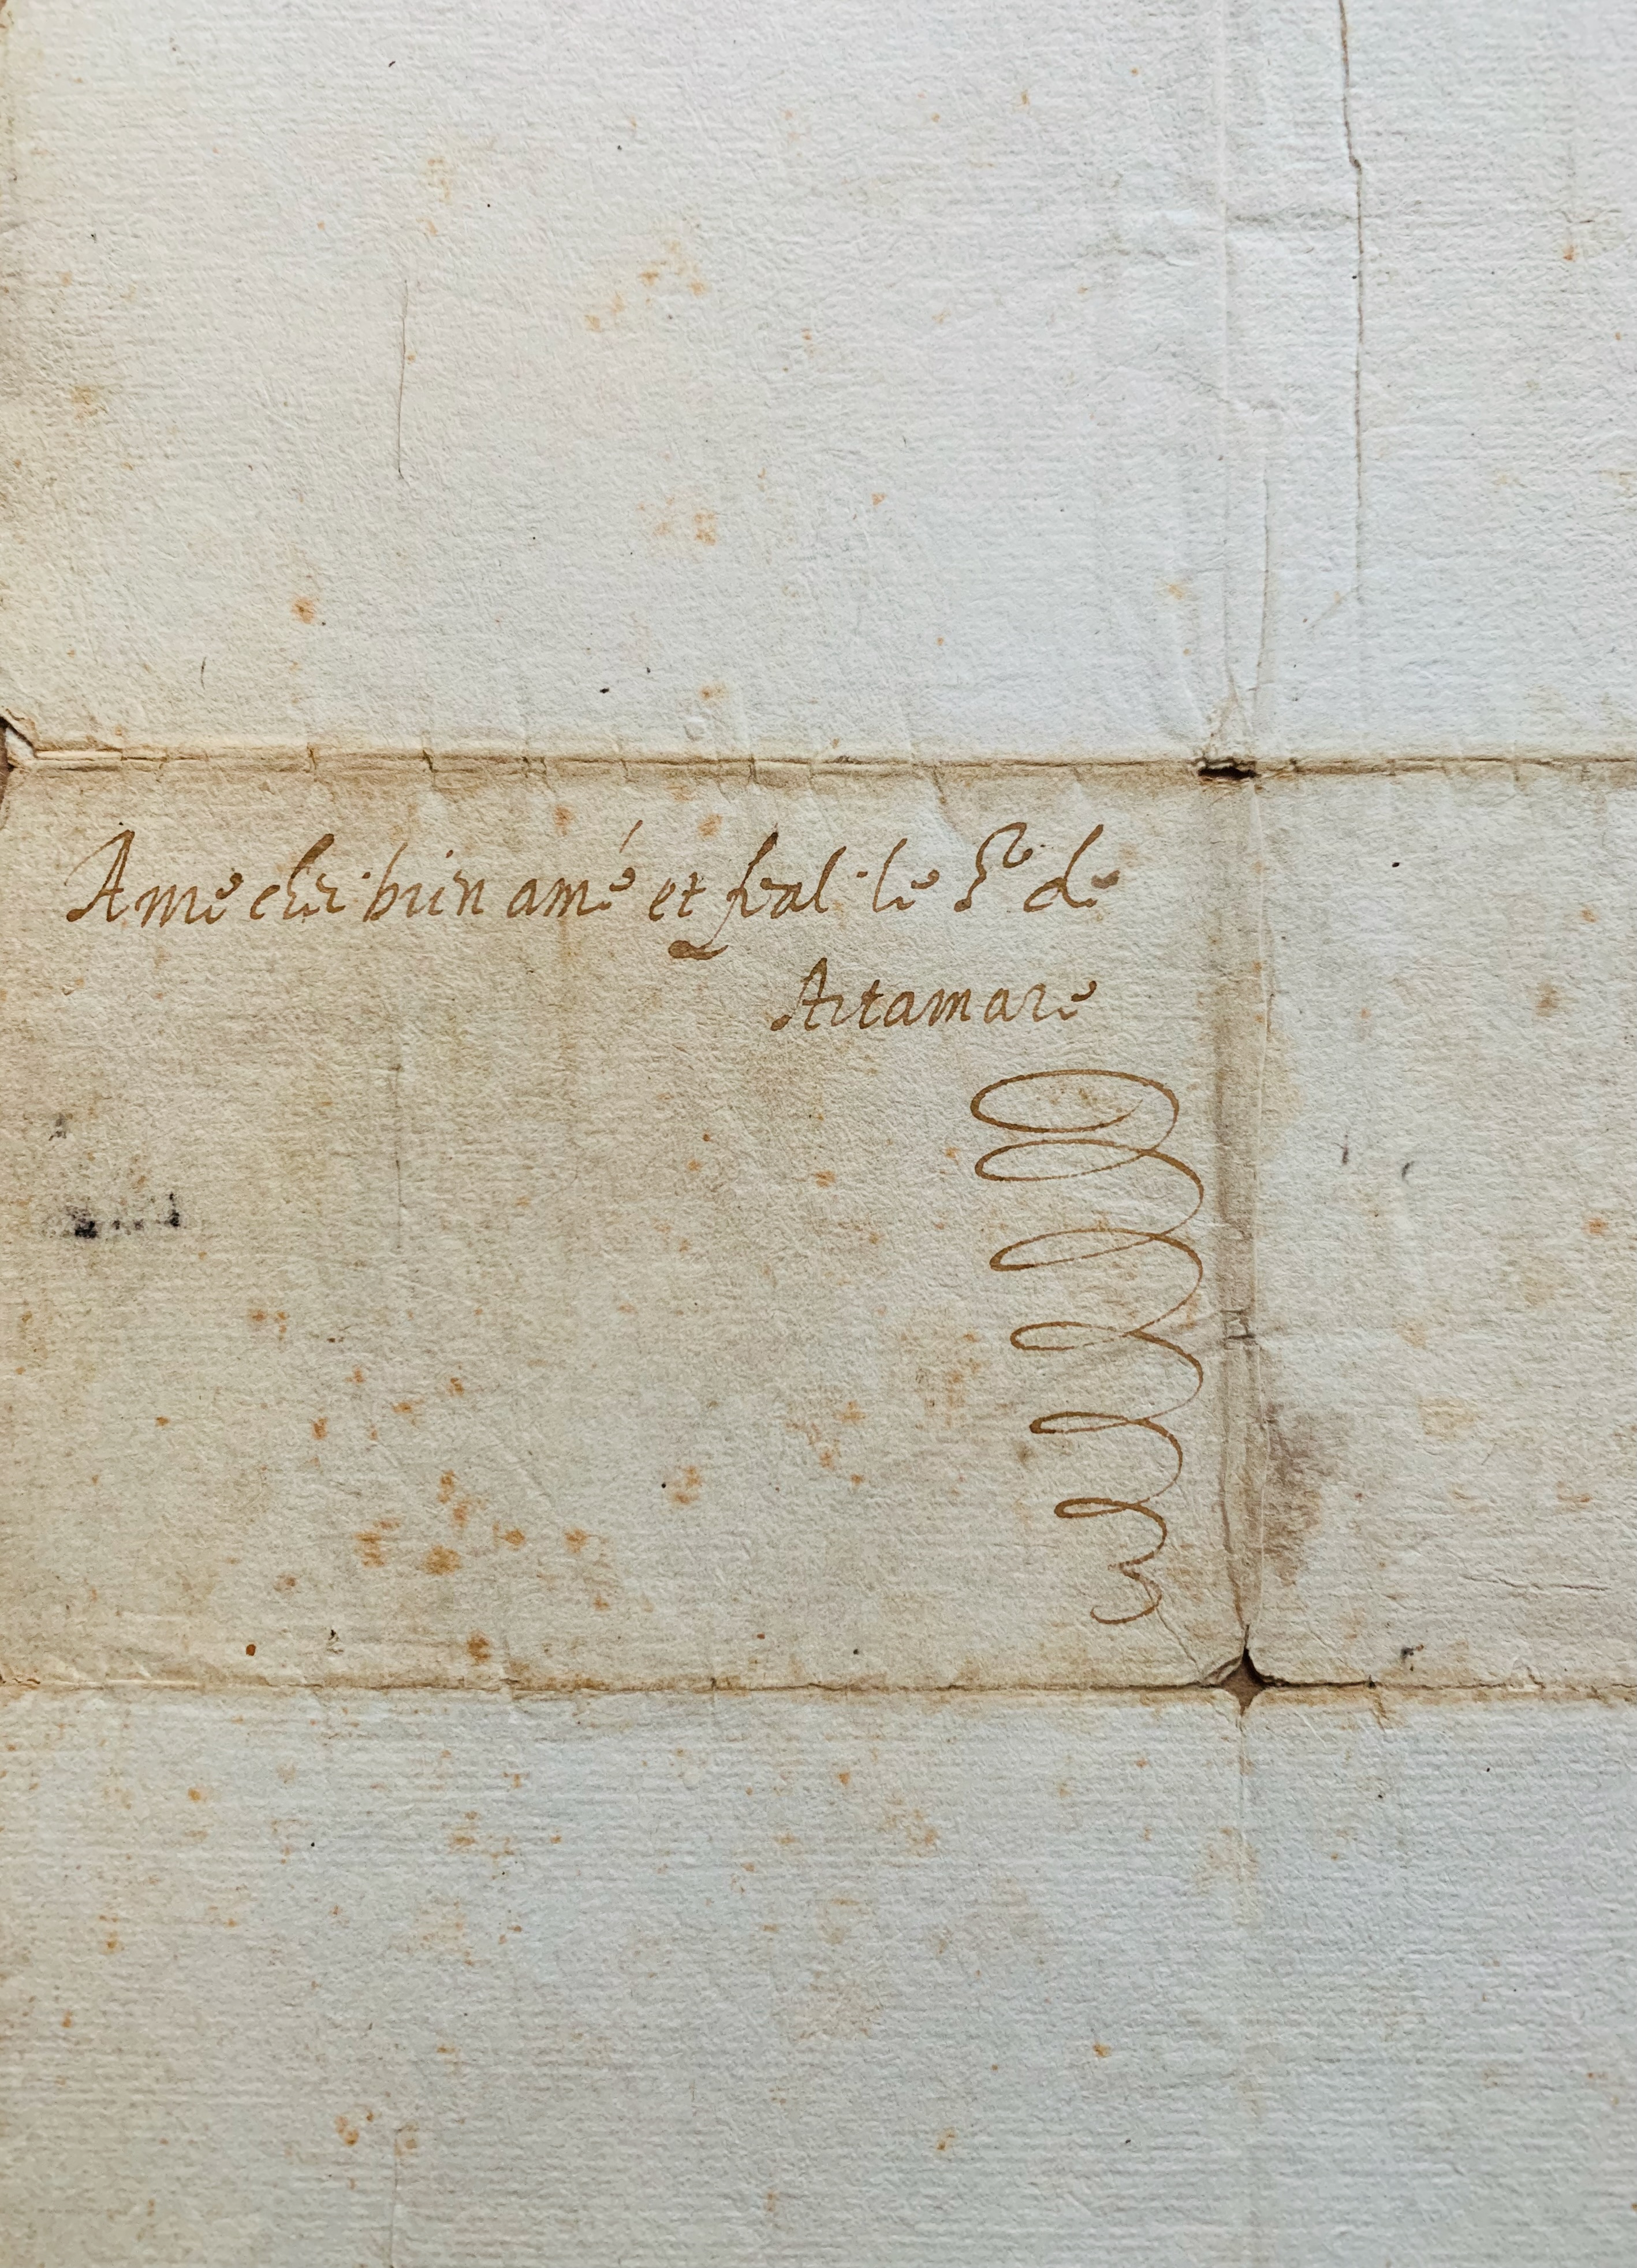 A me cher bien amé et feal le Sr de
Attamare